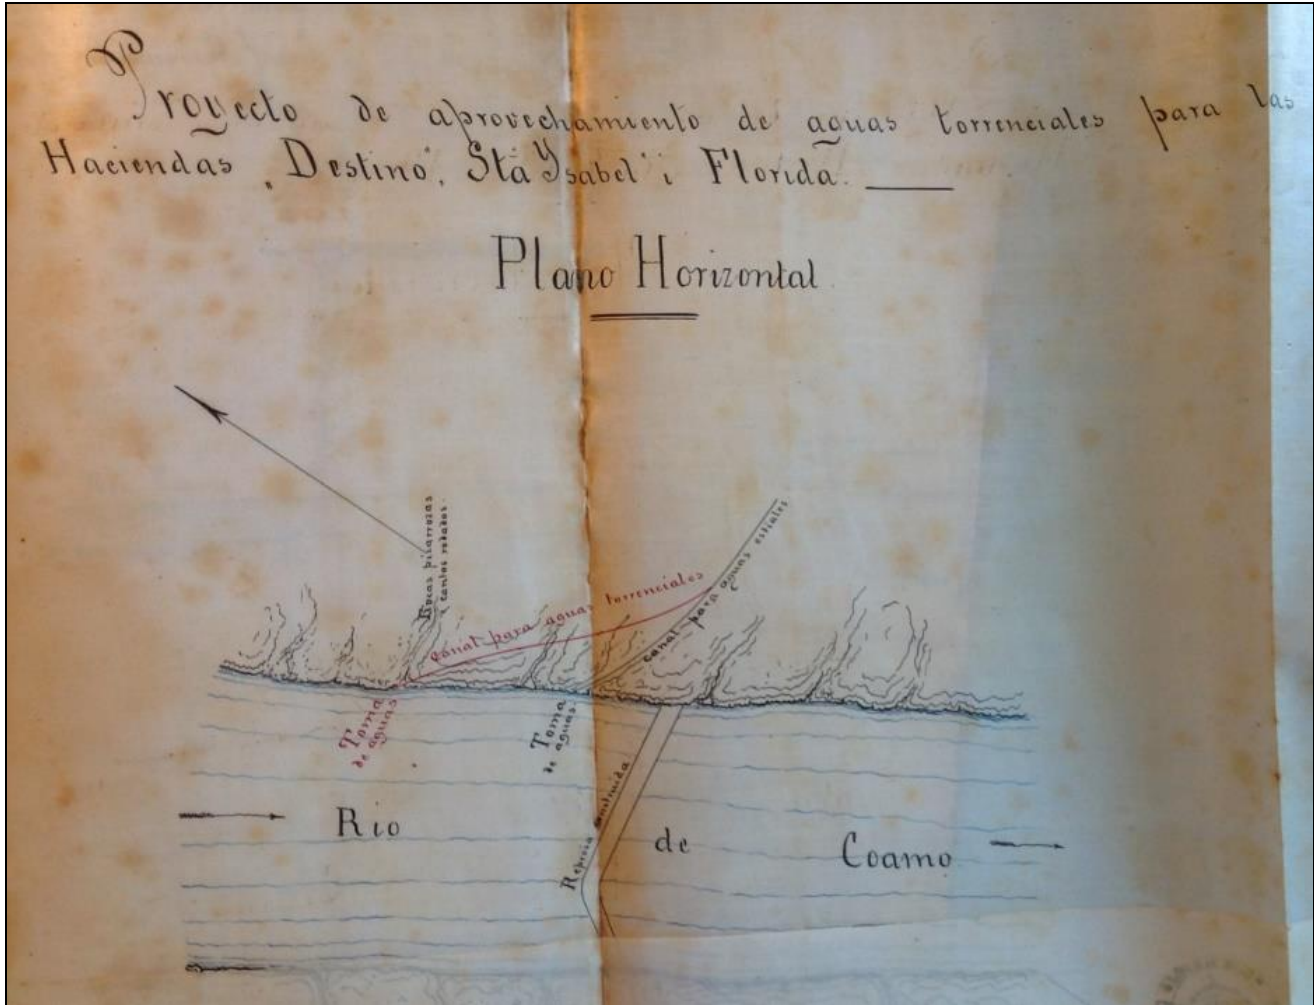 Proyecto de aprovechamiento de aguas torrenciales para las
Haciendas „Destino", Sta Ysabel" i Florida.
Plano Horizontal.
Rocas pizarrozas
i cantos rodados.
canal para aguas torrenciales
canal para aguas estiales
Toma
de aguas
Toma
de aguas
Represa construida
Rio de Coamo